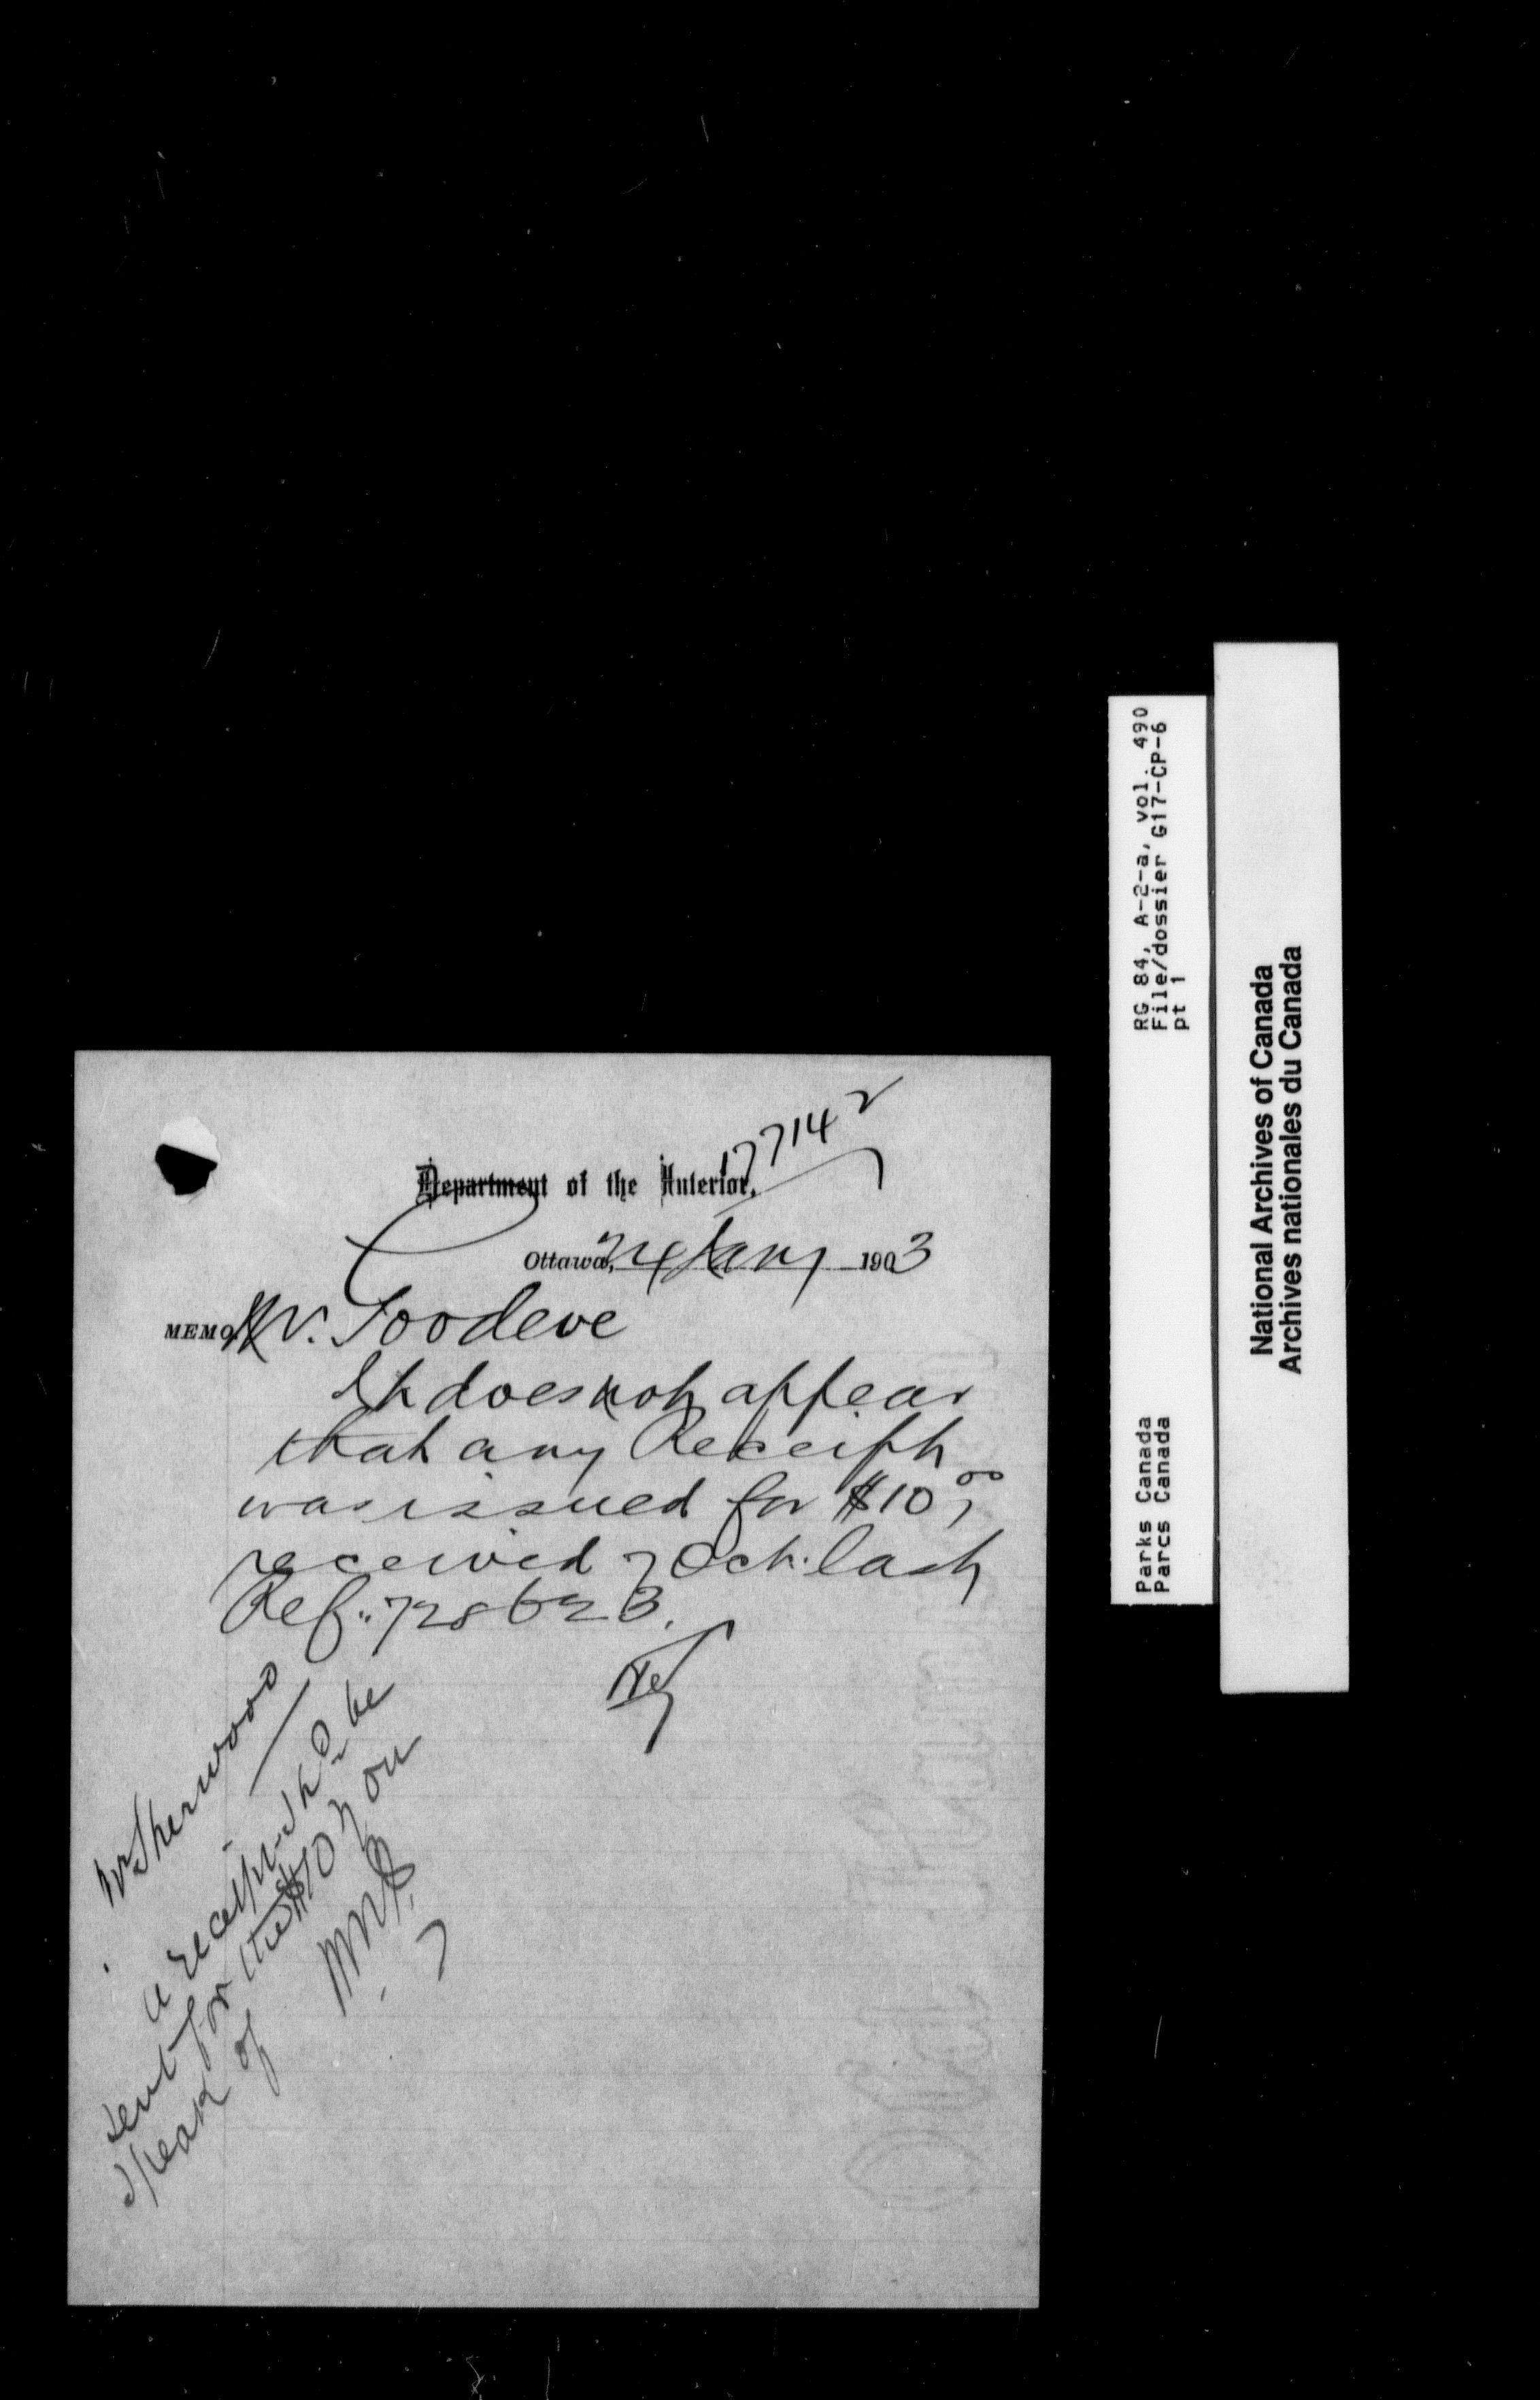 177142
Department of the Interior,
Ottawa, 24 Jany 1903
MEMO Mr. Goodeve
It does not appear
that any Receipt
was issued for $10.00
received 7 Oct. last
Ref. 728623.
Mr Sherwood
a receipt shd be
sent for the $10 you
speak of
RG 84, A-2-a, vol. 490
File/dossier G17-CP-6
pt 1
Parks Canada
Parcs Canada
National Archives of Canada
Archives nationales du Canada